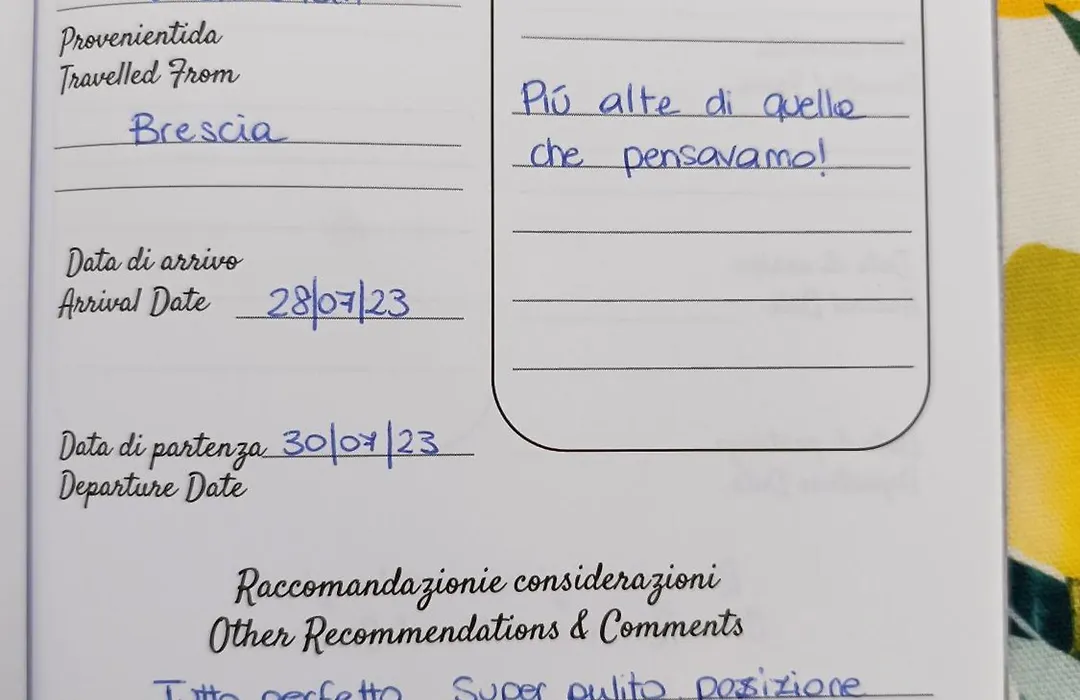 Provenientida
Travelled From
Brescia
Data di arrivo
Arrival Date 28/07/23
Data di partenza 30/07/23
Departure Date
Più alte di quello
che pensavamo!
Raccomandazionie considerazioni
Other Recommendations & Comments
Tutto perfetto. Super pulito posizione